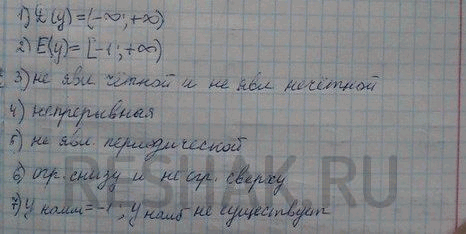 1) D(y)=(-∞;+∞)
2) E(y)=[-1;+∞)
3) не явл чётной и не явл нечётной
4) непрерывная
5) не явл. периодической
6) огр. снизу и не огр. сверху
7) y наим=-1, y наиб не существует
RESHAK.RU